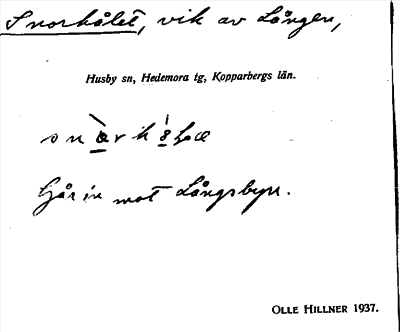 Snorhålet, vik av Lången,
Husby sn, Hedemora tg, Kopparbergs län.
Går in mot Långsbyn.
OLLE HILLNER 1937.